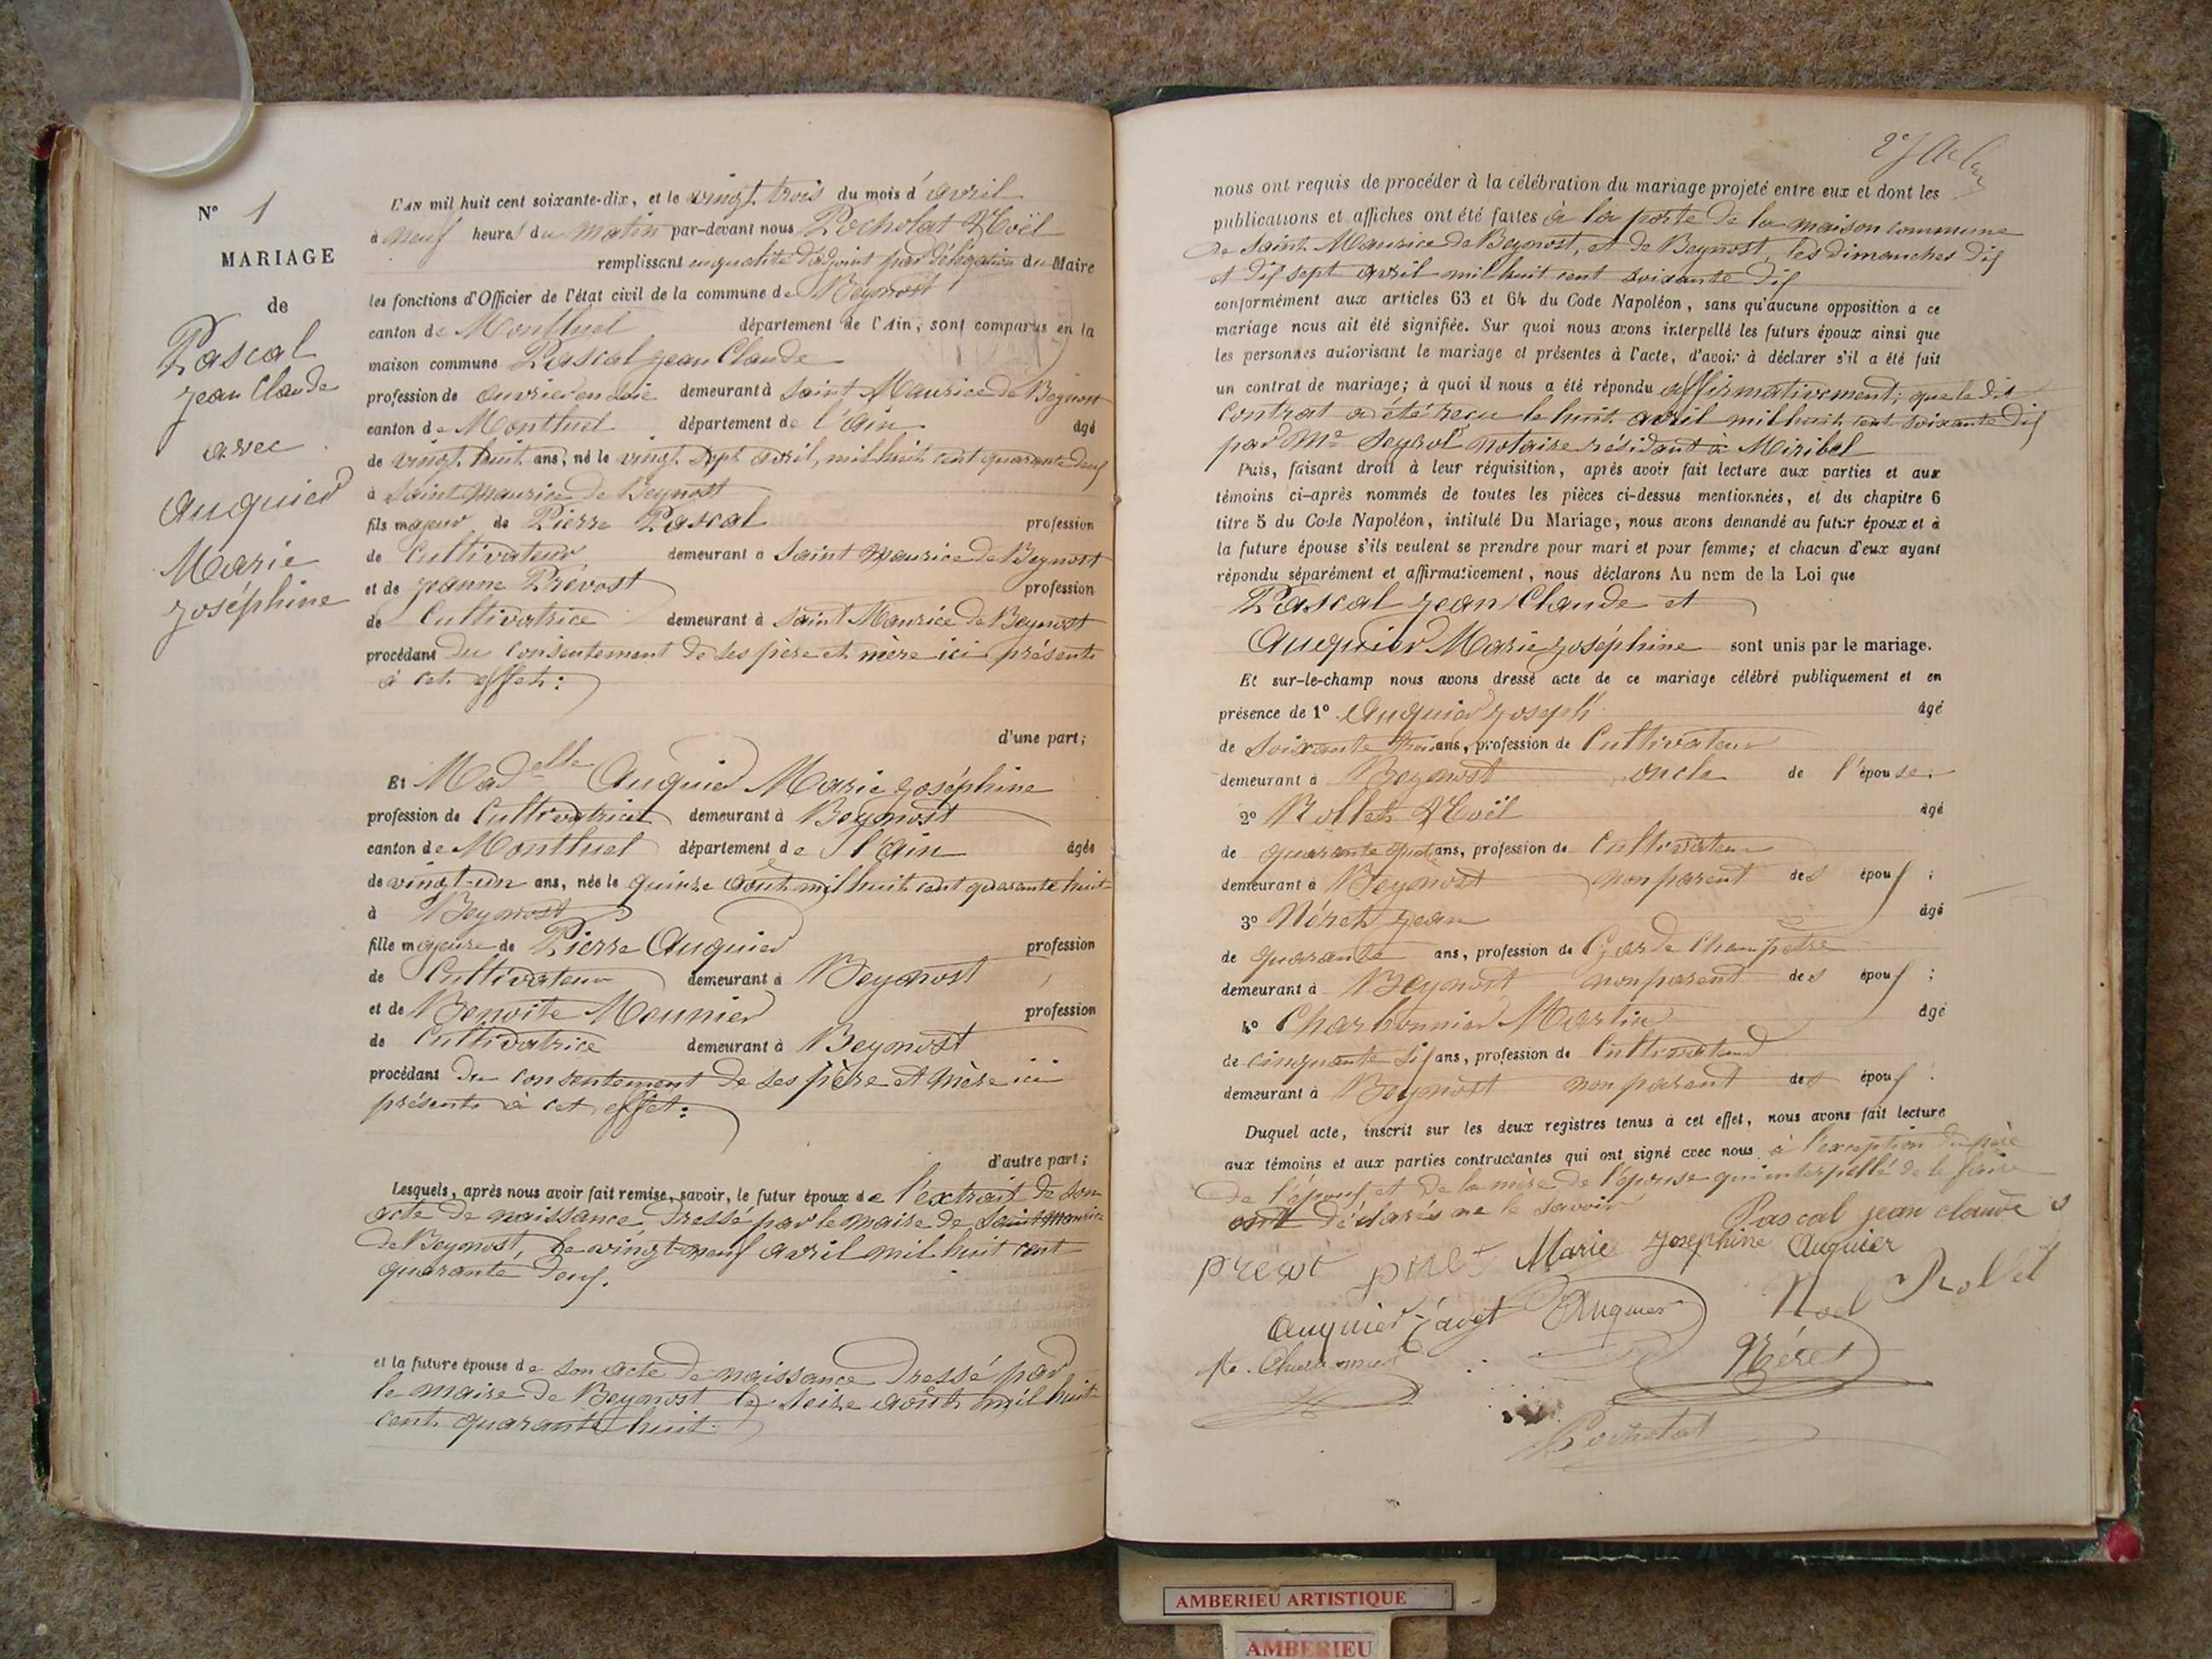 N° 1
MARIAGE
de
Pascal
Jean Claude
avec
Auquier
Marie
Joséphine
L'AN mil huit cent soixante-dix, et le vingt trois du mois d'avril
à neuf heures du matin par-devant nous Pocholat Noël
remplissant en qualité d'adjoint par délégation du Maire
les fonctions d'Officier de l'état civil de la commune de Beynost
canton de Montluel département de l'Ain, sont comparus en la
maison commune Pascal Jean Claude
profession de ouvrier en soie demeurant à Saint Maurice de Beynost
canton de Montluel département de l'Ain âgé
de vingt huit ans, né le vingt sept avril, mil huit cent quarante deux
à Saint Maurice de Beynost
fils majeur de Pierre Pascal profession
de Cultivateur demeurant à Saint Maurice de Beynost
et de Jeanne Prévost profession
de Cultivatrice demeurant à Saint Maurice de Beynost
procédant du consentement de ses père et mère ici présents
à cet effet :
d'une part ;
Et Mad elle Auquier Marie Joséphine
profession de Cultivatrice demeurant à Beynost
canton de Montluel département de l'Ain âgée
de vingt-un ans, née le quinze août mil huit cent quarante huit
à Beynost
fille majeure de Pierre Auquier profession
de Cultivateur demeurant à Beynost
et de Benoite Meunier profession
de Cultivatrice demeurant à Beynost
procédant du consentement de ses père et mère ici
présents à cet effet :
d'autre part ;
Lesquels, après nous avoir fait remise, savoir, le futur époux de l'extrait de son
acte de naissance dressé par le maire de Saint Maurice
de Beynost, le vingt-neuf avril mil huit cent
quarante deux.
et la future épouse de son acte de naissance dressé par
le maire de Beynost le seize août mil huit
cent quarante huit.
nous ont requis de procéder à la célébration du mariage projeté entre eux et dont les
publications et affiches ont été faites à la porte de la maison commune
de Saint Maurice de Beynost, et de Beynost, les dimanches dix
et dix sept avril mil huit cent soixante dix
conformément aux articles 63 et 64 du Code Napoléon, sans qu'aucune opposition à ce
mariage nous ait été signifiée. Sur quoi nous avons interpellé les futurs époux ainsi que
les personnes autorisant le mariage et présentes à l'acte, d'avoir à déclarer s'il a été fait
un contrat de mariage ; à quoi il nous a été répondu affirmativement ; que le dit
contrat a été reçu le huit avril mil huit cent soixante dix
par Me Seyrol notaire résidant à Miribel
Puis, faisant droit à leur réquisition, après avoir fait lecture aux parties et aux
témoins ci-après nommés de toutes les pièces ci-dessus mentionnées, et du chapitre 6
titre 5 du Code Napoléon, intitulé Du Mariage, nous avons demandé au futur époux et à
la future épouse s'ils veulent se prendre pour mari et pour femme ; et chacun d'eux ayant
répondu séparément et affirmativement, nous déclarons Au nom de la Loi que
Pascal Jean Claude et
Auquier Marie Joséphine sont unis par le mariage.
Et sur-le-champ nous avons dressé acte de ce mariage célébré publiquement et en
présence de 1° Auquier Joseph âgé
de soixante trois ans, profession de Cultivateur
demeurant à Beynost oncle de l'épouse ;
2° Rollet Noël âgé
de quarante ans, profession de Cultivateur
demeurant à Beynost non parent des époux ;
3° Néret Jean âgé
de quarante ans, profession de Garde Champêtre
demeurant à Beynost non parent des époux ;
4° Charbonnier Martin âgé
de cinquante six ans, profession de Cultivateur
demeurant à Beynost non parent des époux.
Duquel acte, inscrit sur les deux registres tenus à cet effet, nous avons fait lecture
aux témoins et aux parties contractantes qui ont signé avec nous à l'exception du père
de l'époux, et de la mère de l'épouse qui interpellé de le faire
ont déclarés ne le savoir
Pascal jean claude
Marie Josephine Auquier
Auquier Auquier Noel Rollet
Néret
Pocholat
AMBERIEU ARTISTIQUE
AMBERIEU